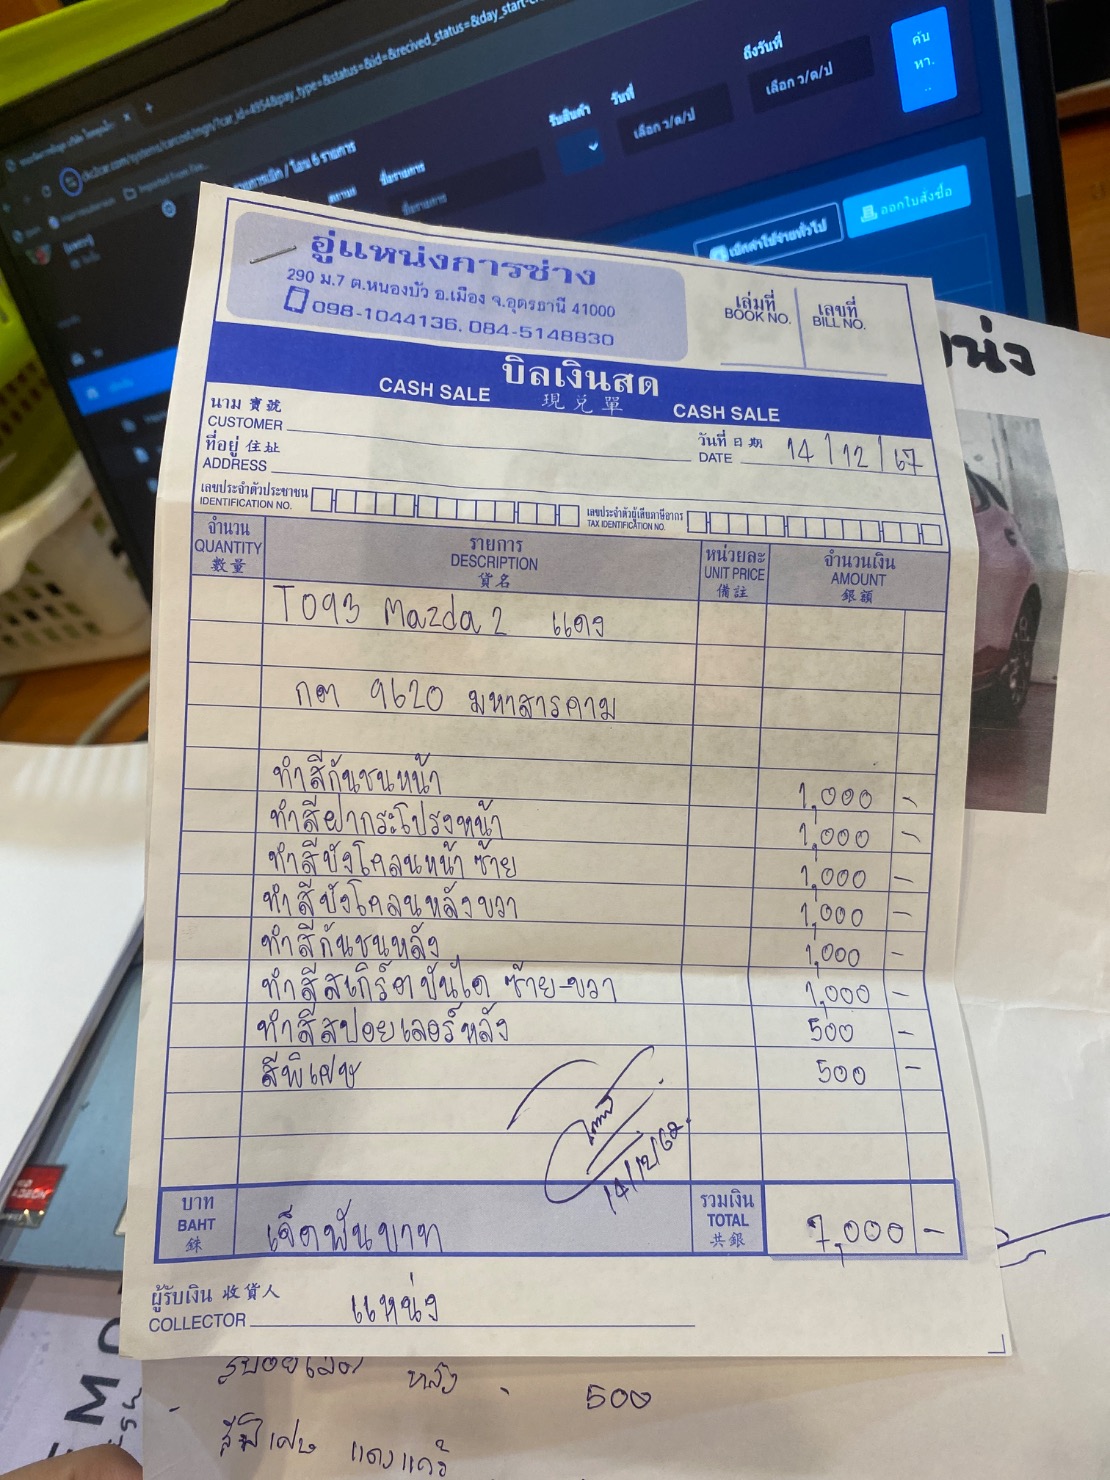 car_id=4954&pay_type=&status=&id=&recived_status=&day_start
ถึงวันที่
เลือก ว/ด/ป
ค้น
หา.
..
รับสินค้า
วันที่
เลือก ว/ด/ป
ชื่อรายการ
ชื่อรายการ
ออกใบสั่งซื้อ
เบิกค่าใช้จ่ายทั่วไป
อู่แหน่งการช่าง
290 ม.7 ต.หนองบัว อ.เมือง จ.อุดรธานี 41000
098-1044136, 084-5148830
เล่มที่
BOOK NO.
เลขที่
BILL NO.
บิลเงินสด
CASH SALE 現兌單 CASH SALE
นาม 寶號
CUSTOMER
วันที่ 日期
DATE 14/12/67
ที่อยู่ 住址
ADDRESS
เลขประจำตัวประชาชน
IDENTIFICATION NO.
เลขประจำตัวผู้เสียภาษีอากร
TAX IDENTIFICATION NO.
จำนวน
QUANTITY
數量
รายการ
DESCRIPTION
貨名
หน่วยละ
UNIT PRICE
備註
จำนวนเงิน
AMOUNT
銀額
T093 Mazda2 แดง
กต 9620 มหาสารคาม
ทำสีกันชนหน้า 1,000 -
ทำสีฝากระโปรงหน้า 1,000 -
ทำสีบังโคลนหน้า ซ้าย 1,000 -
ทำสีบังโคลนหลังขวา 1,000 -
ทำสีกันชนหลัง 1,000 -
ทำสีสเกิร์ตบันได ซ้าย-ขวา 1,000 -
ทำสีสปอยเลอร์หลัง 500 -
สีพิเศษ 500 -
บาท
BAHT
銖
เจ็ดพันบาท
รวมเงิน
TOTAL
共銀
7,000 -
ผู้รับเงิน 收貨人
COLLECTOR แหน่ง
หลัง - 500
สีพิเศษ แดงแก้ว